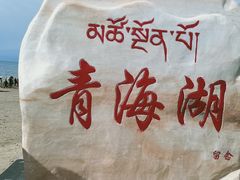 མཚོ་སྔོན་པོ།
青海湖
留念